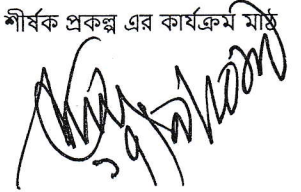 শীর্ষক প্রকল্প এর কার্যক্রম মাঠ